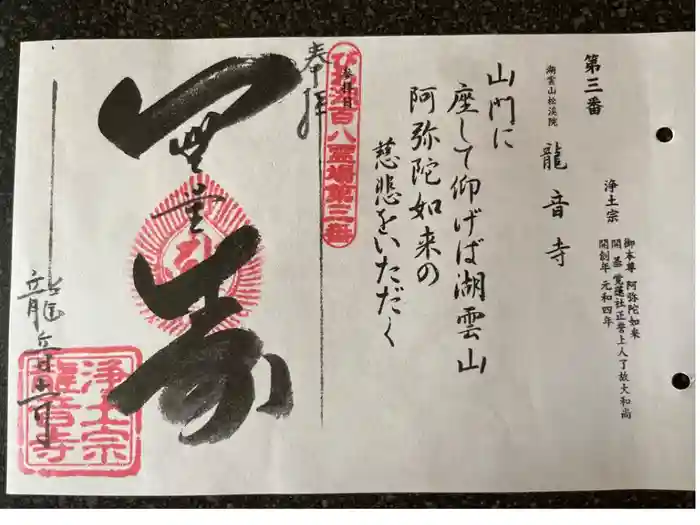 第三番
湖雲山松渓院
龍音寺
浄土宗
御本尊 阿弥陀如来
開基 覚蓮社正誉上人了故大和尚
開創年 元和四年
山門に
座して仰げば湖雲山
阿弥陀如来の
慈悲をいただく
奉拝
参拝日
百八霊場第三番
無量寿
龍音寺
浄土宗
龍音寺